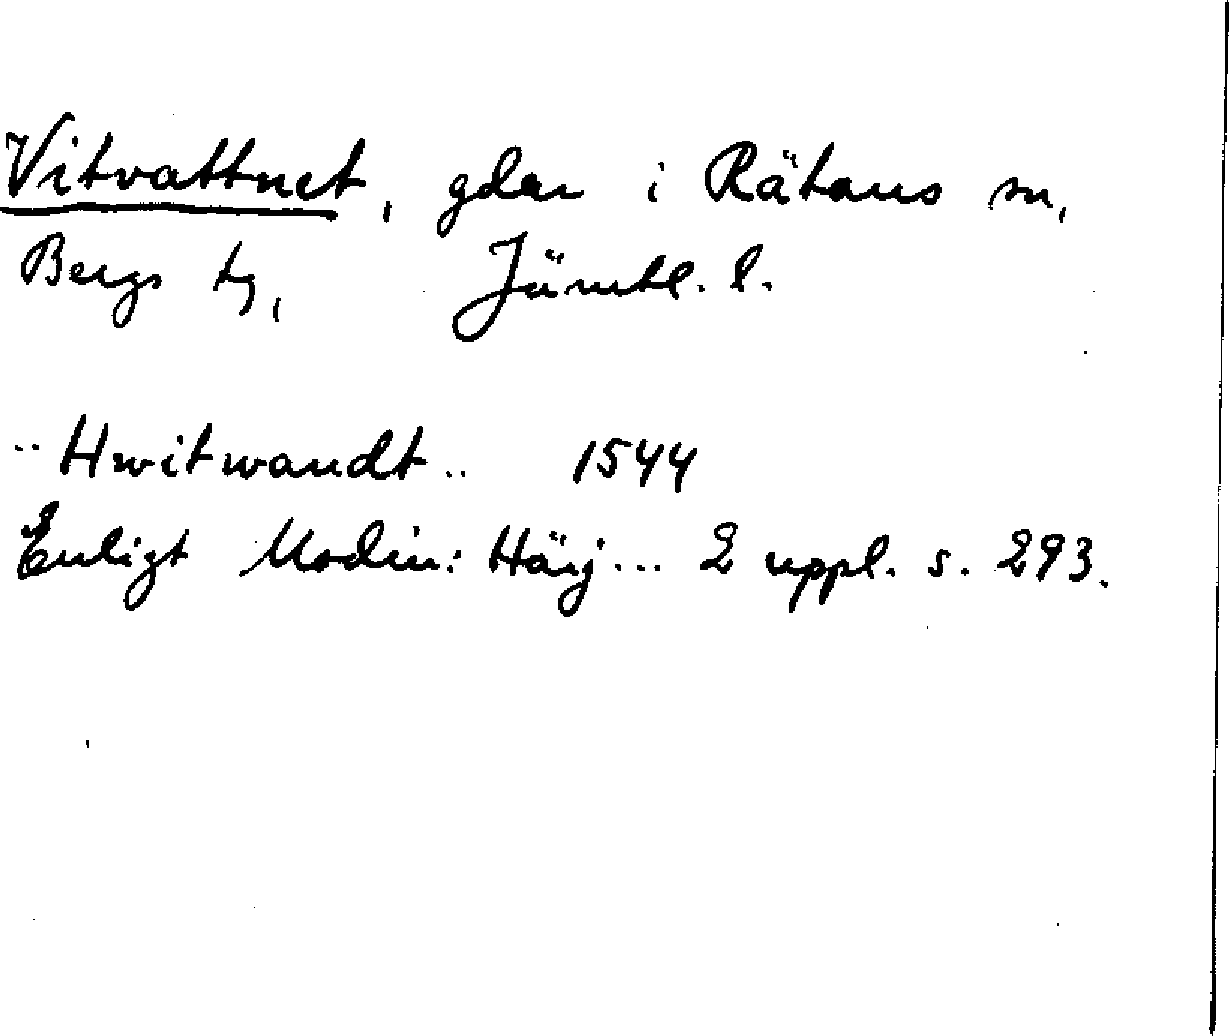 Vitvattnet, gdar i Rätans sn,
Bergs tg, Jämtl. l.
..Hwitwandt.. 1544
Enligt Modin: Härj... 2 uppl. s. 293.